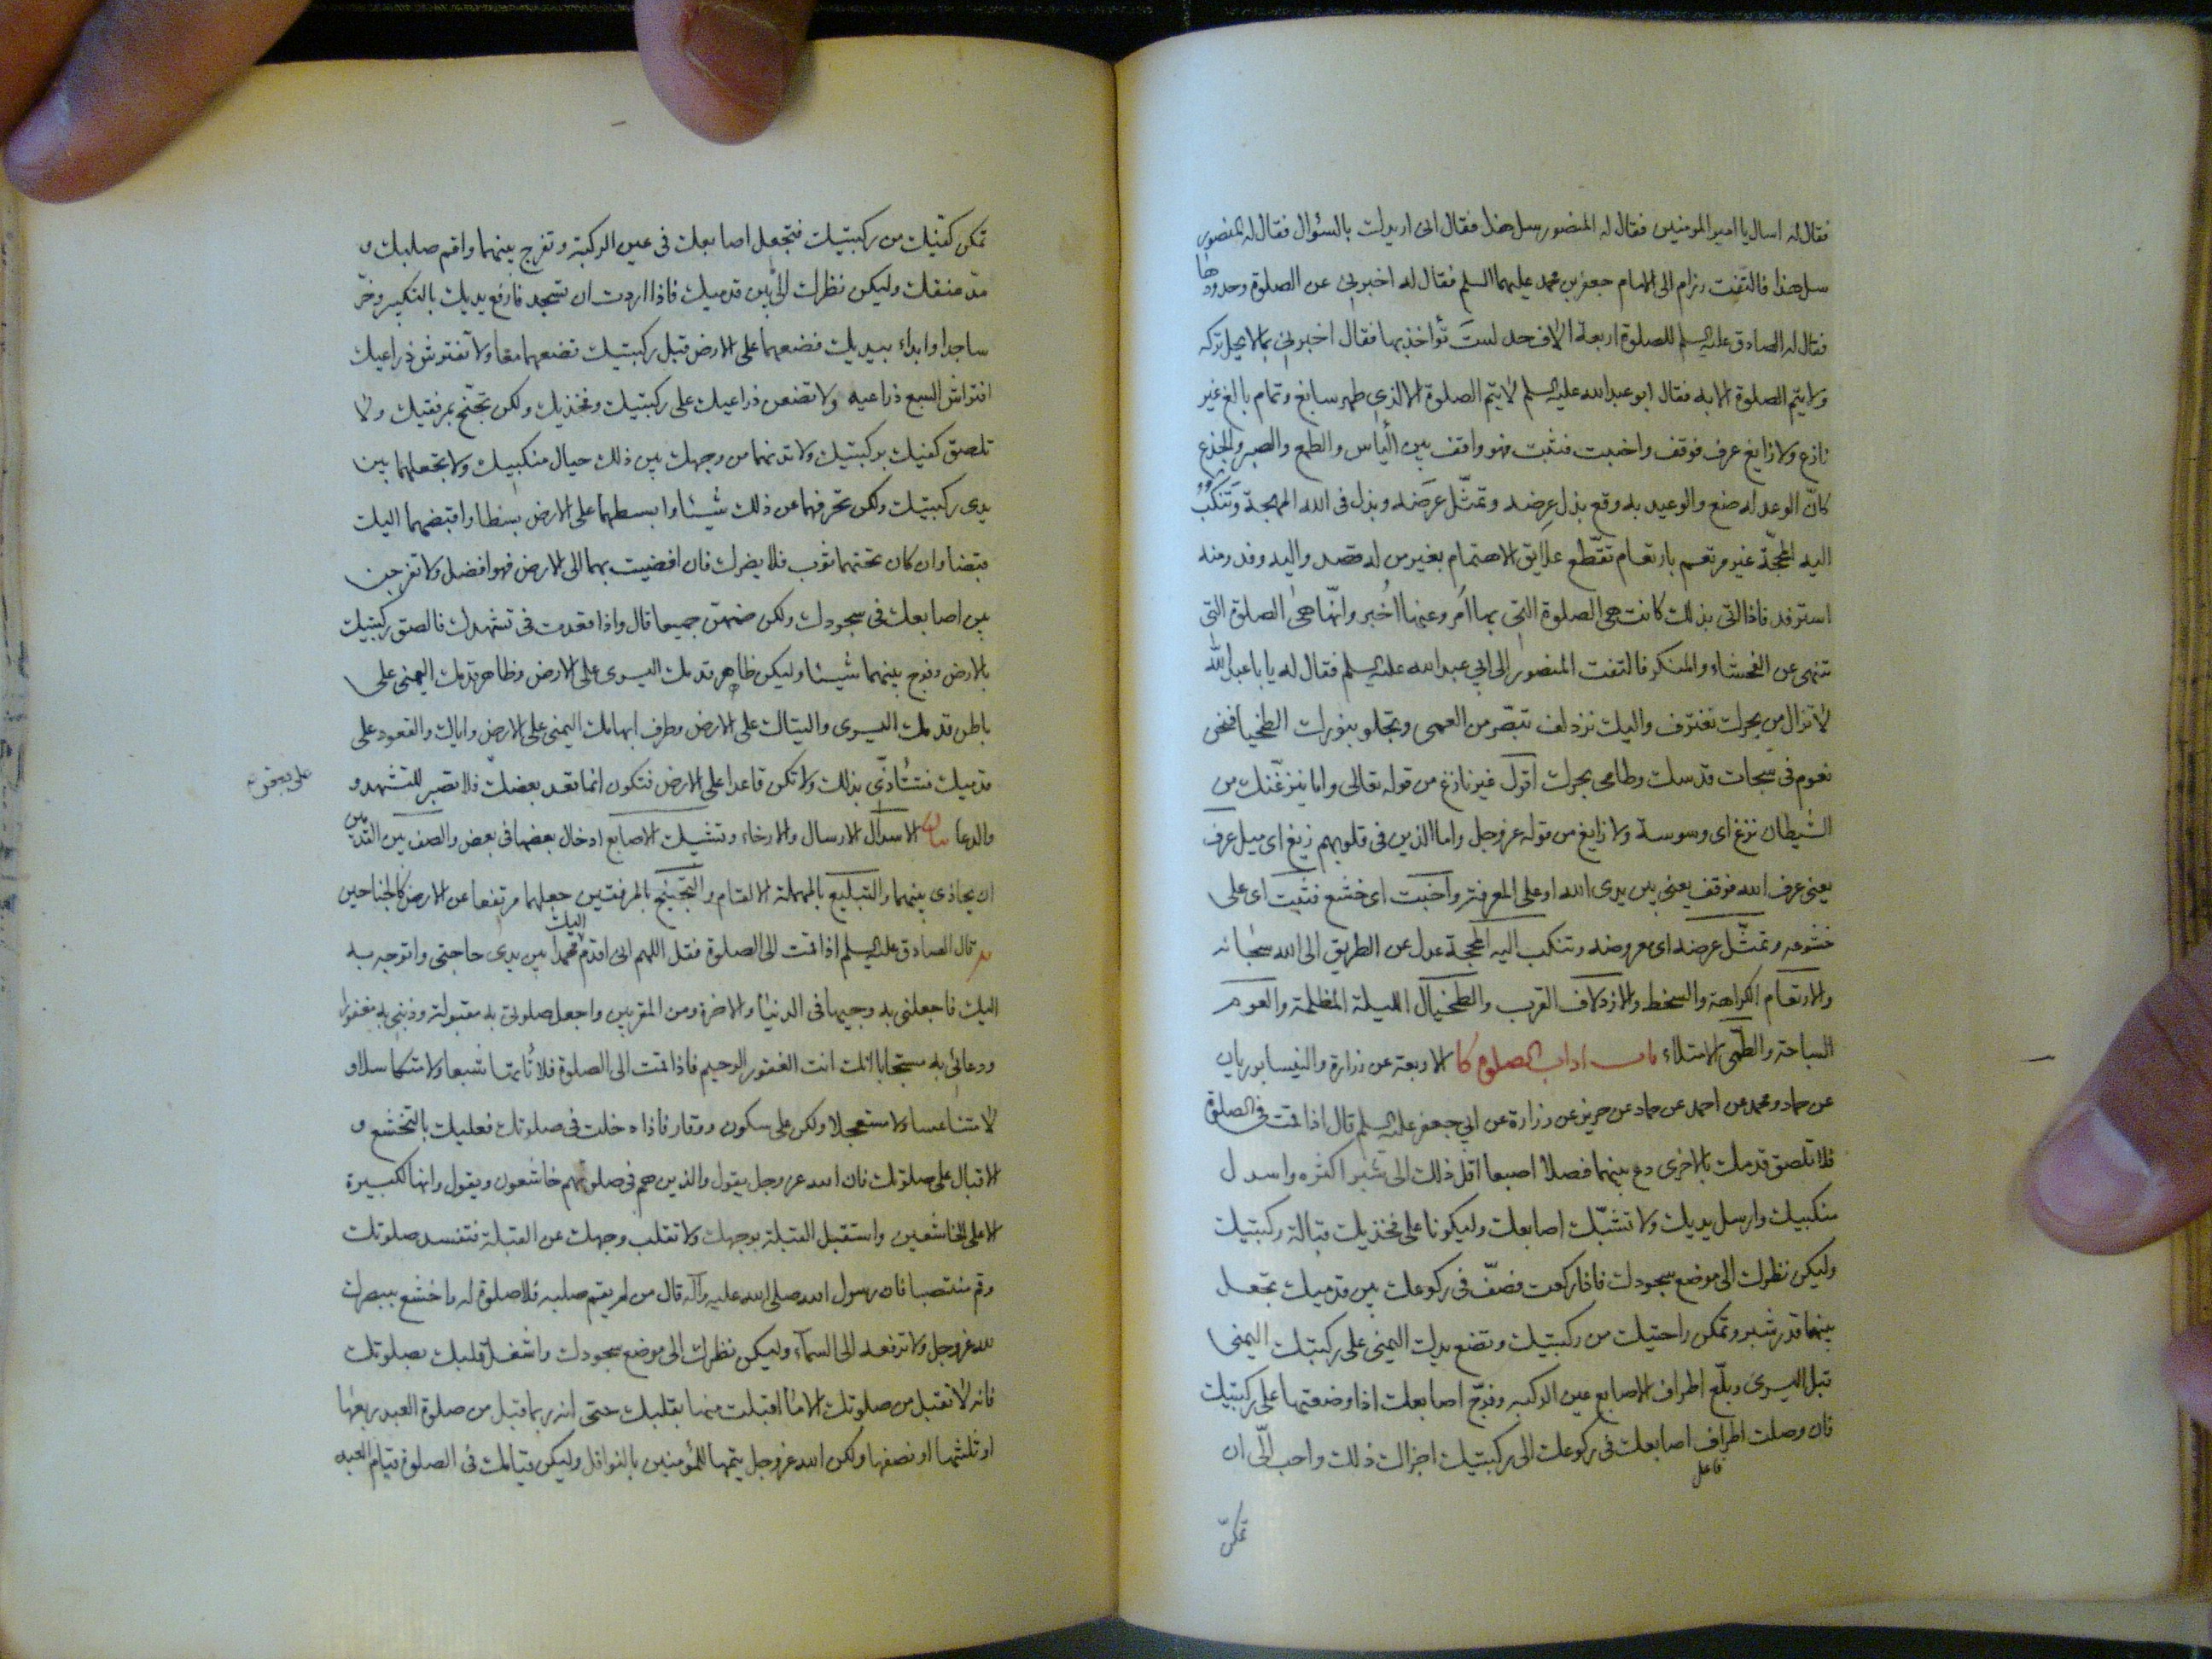 فقال له اسال يا امير المومنين فقال له المنصور سل هذا فقال انى اريدك بالسؤال فقال له المنصور
سل هذا فالتفت رزام الى الامام جعفر بن محمد عليهما السلم فقال له اخبرنى عن الصلوة وحدودها
فقال له الصادق عليه السلم للصلوة اربعة الاف حد لست تؤاخذ بها فقال اخبرنى بما لا يحل تركه
ولا يتم الصلوة الا به فقال ابو عبد الله عليه السلم لا يتم الصلوة الا لذى طهر سابغ وتمام بالغ غير
نازغ ولا زايغ عرف فوقف واخبت فثبت فهو واقف بين الياس والطمع والصبر والجزع
كانّ الوعد له صنع والوعيد به وقع بذل عرضه وتمثّل عرضه وبذل فى الله المهجة وتنكب
اليه المحجّة غير مرتغم بارتغام تقطّع علايق الاهتمام بغير من له قصد واليه وفد ومنه
استرفد فاذا اتى بذلك كانت هى الصلوة التى بها امر وعنها اُخبر وانّها هى الصلوة التى
تنهى عن الفحشاء والمنكر فالتفت المنصور الى ابي عبد الله عليه السلم فقال له يا با عبد الله
لا تزال من بحرك نغترف واليك نزدلف تبصّر من العمى وتجلو بنورك الطخيا فنحن
نعوم فى سبحات قدسك وطامى بحرك اقول غير نازغ من قوله تعالى واما ينزغنّك من
الشيطان نزغ اى وسوسة ولا زايغ من قوله عز وجل واما الذين فى قلوبهم زيغ اى ميل عرف
يعنى عرف الله فوقف يعنى بين يدى الله او على المعرفة واخبت اى خشع فثبت اى على
خشوعه وتمثّل عرضه اى معروضه وتنكب اليه المحجة عدل عن الطريق الى الله سبحانه
والارتغام الكراهة والسخط والازدلاف القرب والطخيا الليلة المظلمة والعوم
السباحة والطمى الامتلاء باب اداب الصلوة كا الاربعة عن زرارة والنيسابوريان
عن حماد ومحمد عن احمد عن حماد عن حريز عن زرارة عن ابي جعفر عليه السلم قال اذا قمت فى الصلوة
فلا تلصق قدمك بالاخرى دع بينهما فصلا اصبعا اقل ذلك الى شبر اكثره واسدل
منكبيك وارسل يديك ولا تشبّك اصابعك وليكونا على فخذيك قبالة ركبتيك
وليكن نظرك الى موضع سجودك فاذا ركعت فصفّ فى ركوعك بين قدميك تجعل
بينهما قدر شبر وتمكن راحتيك من ركبتيك وتضع يدك اليمنى على ركبتك اليمنى
قبل اليسرى وبلّع اطراف الاصابع عين الركبه وفرّج اصابعك اذا وضعتها على ركبتيك
فان وصلت اطراف اصابعك فى ركوعك الى ركبتيك اجزاك ذلك واحب الىّ ان
فاعل
تمكن
تمكن كفيك من ركبتيك فتجعل اصابعك فى عين الركبة وتفرج بينهما واقم صلبك و
مدّ عنقك وليكن نظرك الى بين قدميك فاذا اردت ان تسجد فارفع يديك بالتكبير وخرّ
ساجدا وابداء بيديك فضعهما على الارض قبل ركبتيك تضعهما معا ولا تفترش ذراعيك
افتراش السبع ذراعيه ولا تضعن ذراعيك على ركبتيك وفخذيك ولكن تجنّح بمرفقيك ولا
تلصق كفيك بركبتيك ولا تدنهما من وجهك بين ذلك حيال منكبيك ولا تجعلهما بين
يدى ركبتيك ولكن تحرفهما عن ذلك شيئا وابسطهما على الارض بسطا واقبضهما اليك
قبضا وان كان تحتهما ثوب فلا يضرك فان افضيت بهما الى الارض فهو افضل ولا تفرجن
بين اصابعك فى سجودك ولكن ضمهنّ جميعا قال واذا قعدت فى تشهدك فالصق ركبتيك
بالارض وفرج بينهما شيئا وليكن ظاهر قدمك اليسرى على الارض وظاهر قدمك اليمنى على
باطن قدمك اليسرى والبتاك على الارض وطرف ابهامك اليمنى على الارض واياك والقعود على
قدميك فتتأذّى بذلك ولا تكن قاعدا على الارض فتكون انما قعد بعضك فلا تصبر للتشهد و
على بعض
والدعا بيان الاسدال الارسال والارخاء وتشبيك الاصابع ادخال بعضها فى بعض والصف بين القدمين
ان يحاذى بينهما والتبليع بالمهملة الالقام والتجنيح بالمرفقين جعلهما مرتفعا عن الارض كالجناحين
قال الصادق عليه السلم اذا قمت الى الصلوة فقل اللهم انى اقدم اليك محمدا بين يدى حاجتى واتوجه به
اليك فاجعلنى به وجيها فى الدنيا والاخرة ومن المقربين واجعل صلوتى به مقبولة وذنبى به مغفورا
ودعائى به مستجابا انك انت الغفور الرحيم فاذا قمت الى الصلوة فلا تأتها شبعا ولا متكاسلا و
لا متناعسا ولا مستعجلا ولكن على سكون ووقار فاذا دخلت فى صلوتك فعليك بالتخشع و
الاقبال على صلوتك فان الله عز وجل يقول والذين هم فى صلوتهم خاشعون ويقول وانها لكبيرة
الا على الخاشعين واستقبل القبلة بوجهك ولا تقلب وجهك عن القبلة فتفسد صلوتك
وقم منتصبا فان رسول الله صلى الله عليه وآله قال من لم يقم صلبه فلا صلوة له واخشع ببصرك
لله عز وجل ولا ترفعه الى السمآء وليكن نظرك الى موضع سجودك واشغل قلبك بصلوتك
فانه لا تقبل من صلوتك الا ما اقبلت منها بقلبك حتى انه ربما قبل من صلوة العبد ربعها
او ثلثها او نصفها ولكن الله عز وجل يتمها للمؤمنين بالنوافل وليكن قيامك فى الصلوة قيام العبد